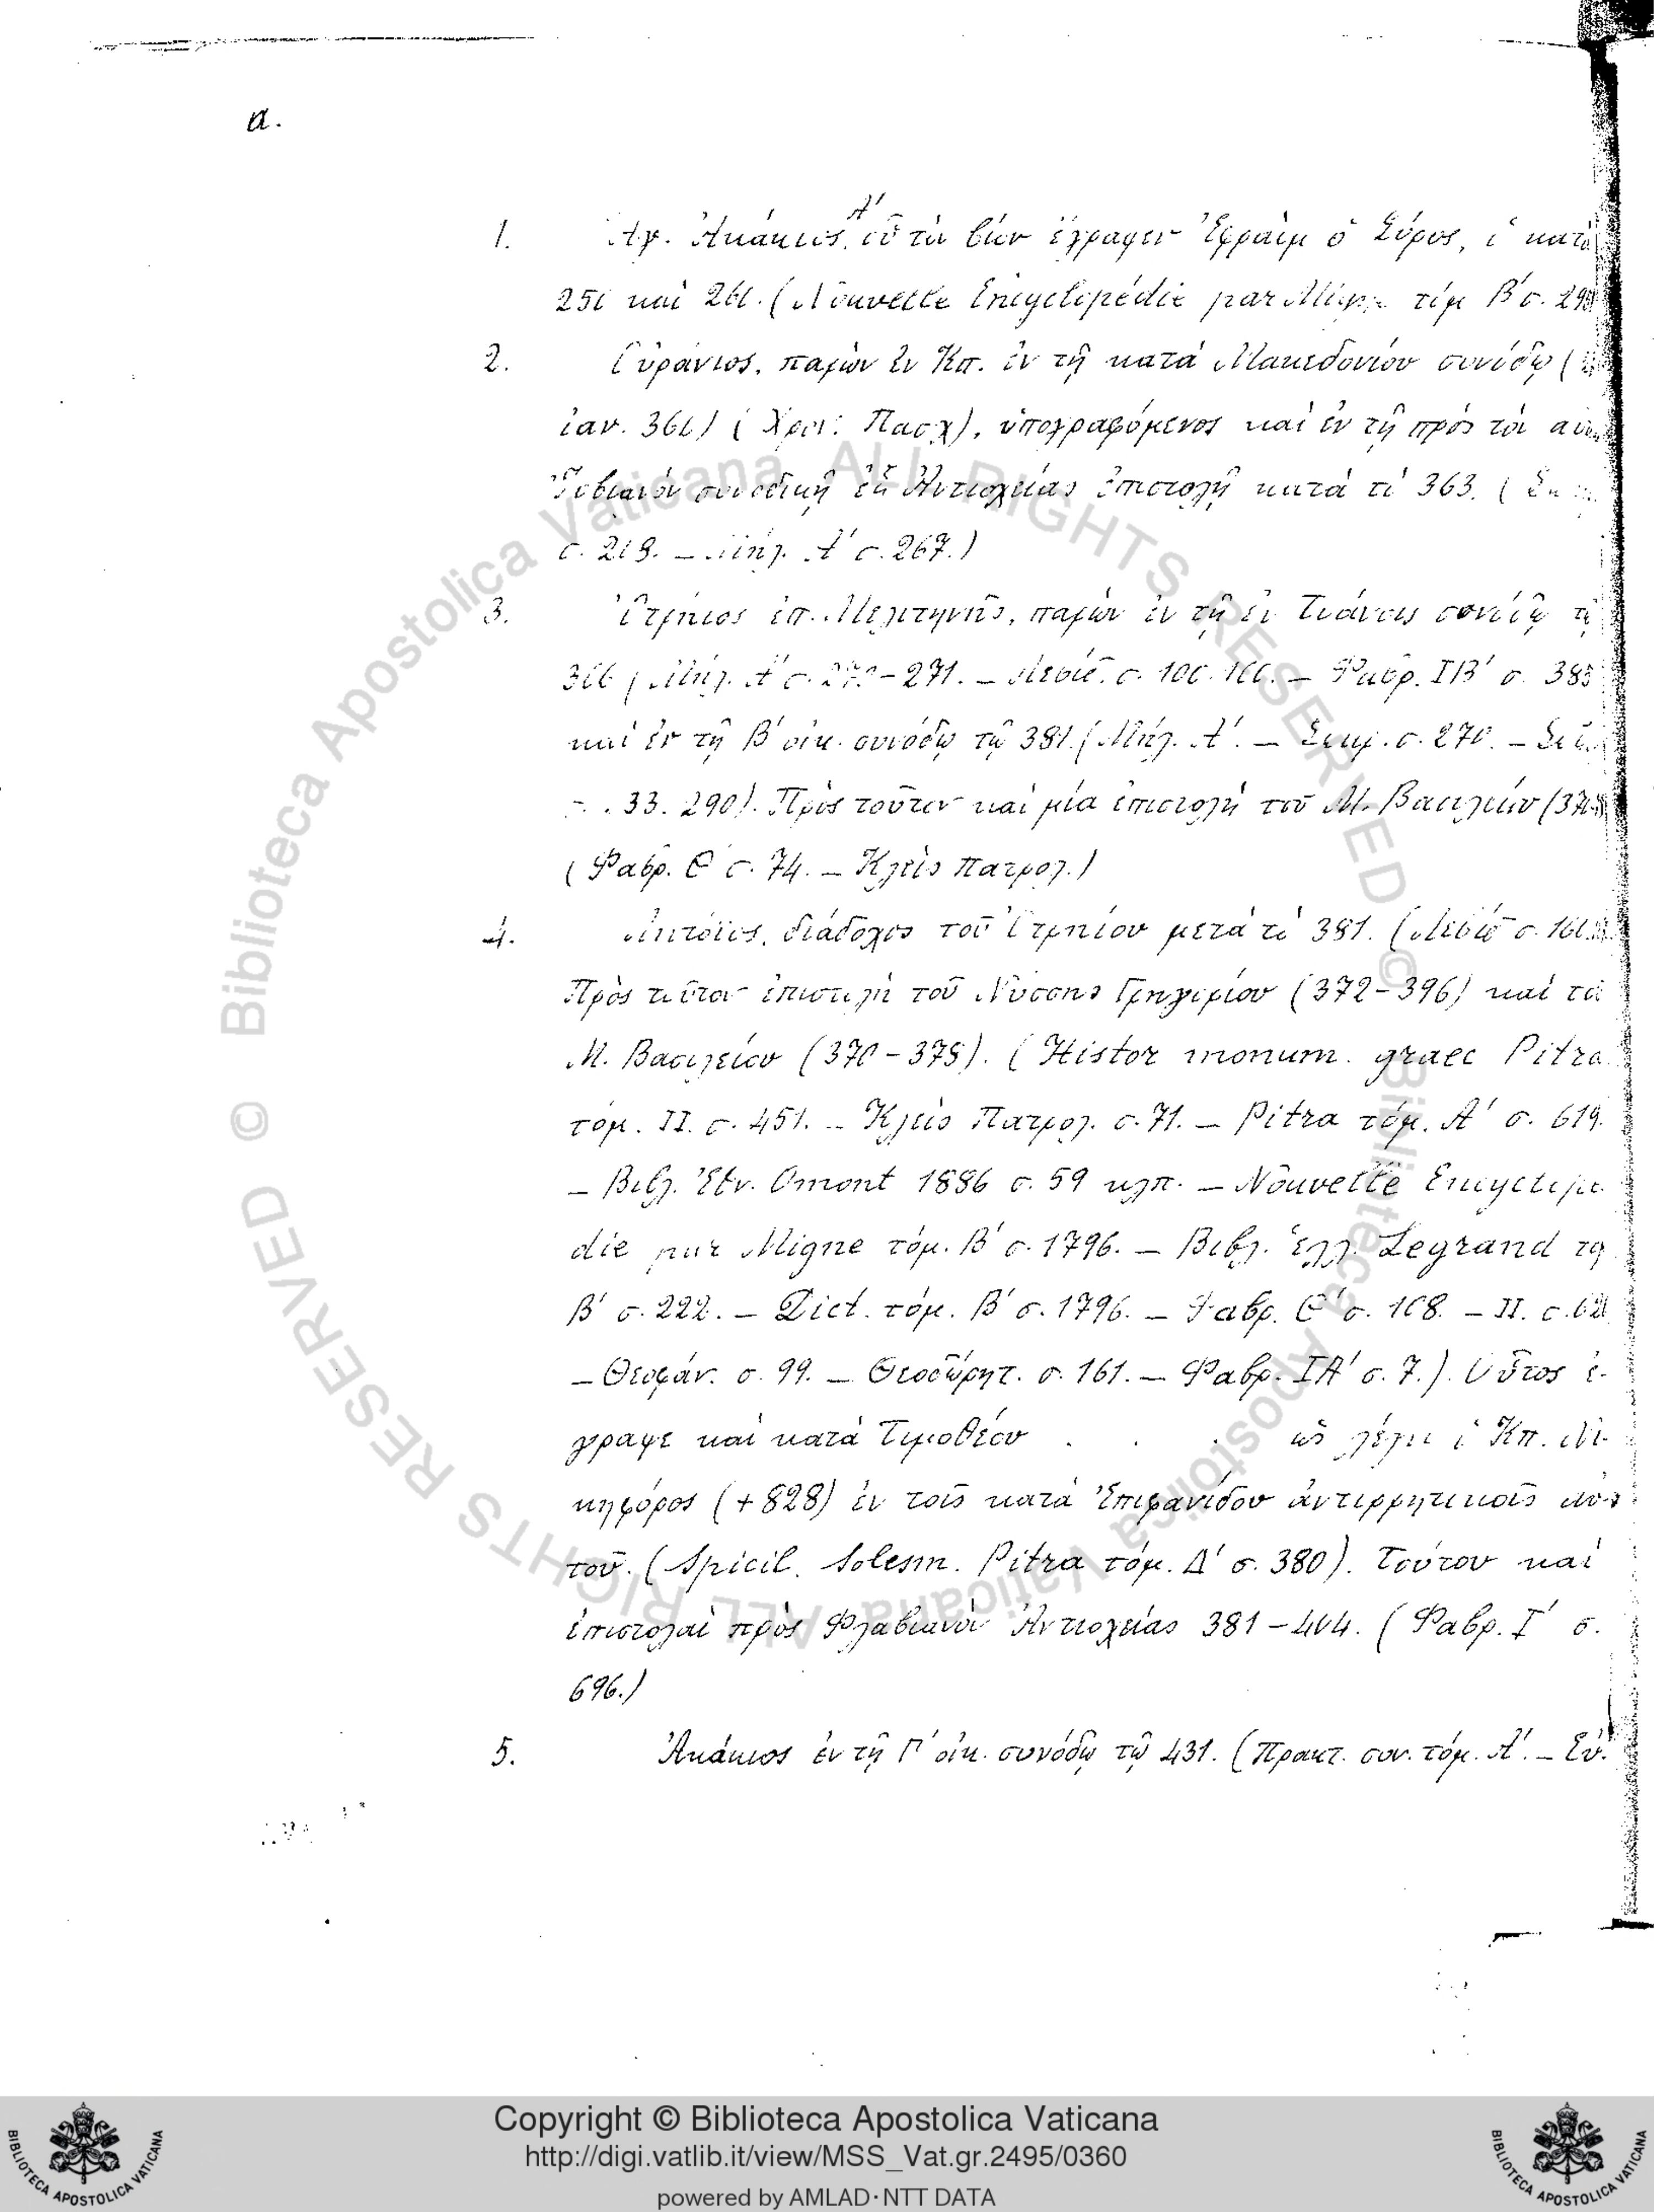 α.
1. Ἅγ. Ἀκάκιος Α΄, οὗ τὸν βίον ἔγραψεν Ἐφραὶμ ὁ Σύρος, ὁ κατὰ
251 καὶ 261. (Nouvelle Encyclopédie par Migne τόμ. Β΄ σ.
2. Οὐράνιος, παρὼν ἐν Κπ. ἐν τῇ κατὰ Μακεδονίου συνόδῳ (
ἰαν. 360) (Χρον. Πασχ), ὑπογραφόμενος καὶ ἐν τῇ πρὸς τὸν
Ἰοβιανὸν συνοδικῇ ἐξ Ἀντιοχείας ἐπιστολῇ κατὰ τὸ 363. (
σ. 219. – Μήλ. Α΄ σ. 267.)
3. Ὀτρήιος ἐπ. Μελιτηνῆς, παρὼν ἐν τῇ ἐν Τυάνοις συνόδῳ τῷ
366 (Μήλ. Α΄ σ. 270-271. – Λεβιὲ σ. 100. – Φαβρ. ΙΒ΄ σ. 383
καὶ ἐν τῇ Β΄ οἰκ. συνόδῳ τῷ 381. (Μήλ. Α΄. – Σωκρ. σ. 270. –
33. 290). Πρὸς τοῦτον καὶ μία ἐπιστολὴ τοῦ Μ. Βασιλείου
(Φαβρ. Θ΄ σ. 74. – Κλεὶς πατρολ.)
4. Λητόϊος, διάδοχος τοῦ Ὀτρηίου μετὰ τὸ 381. (Λεβιὲ σ.
Πρὸς τοῦτον ἐπιστολὴ τοῦ Νύσσης Γρηγορίου (372-396) καὶ τοῦ
Μ. Βασιλείου (370-378). (Histor monum. graec Pitra
τόμ. II. σ. 451. – Κλεὶς Πατρολ. σ. 71. – Pitra τόμ. Α΄ σ. 619.
– Βιβλ. Ἐθν. Omont 1886 σ. 59 κλπ. – Nouvelle Encyclopé
die par Migne τόμ. Β΄ σ. 1796. – Βιβλ. ἑλλ. Legrand τόμ
Β΄ σ. 222. – Dict. τόμ. Β΄ σ. 1796. – Φαβρ. Θ΄ σ. 108. – II. σ.
– Θεοφάν. σ. 99. – Θεοδώρητ. σ. 161. – Φαβρ. ΙΑ΄ σ. 7.). Οὗτος ἔ-
γραψε καὶ κατὰ Τιμοθέου . . . ὡς λέγει ὁ Κπ. Νι-
κηφόρος (+828) ἐν τοῖς κατὰ Ἐπιφανίδου ἀντιρρητικοῖς αὐ-
τοῦ. (Spicil. Solesm. Pitra τόμ. Δ΄ σ. 380). Τούτου καὶ
ἐπιστολαὶ πρὸς Φλαβιανὸν Ἀντιοχείας 381-404. (Φαβρ. Ι΄ σ.
696.)
5. Ἀκάκιος ἐν τῇ Γ΄ οἰκ. συνόδῳ τῷ 431. (Πρακτ. συν. τόμ. Α΄. –
© Biblioteca Apostolica Vaticana ALL RIGHTS RESERVED © Biblioteca Apostolica Vaticana ALL RIGHTS RESERVED
BIBLIOTECA APOSTOLICA VATICANA
Copyright © Biblioteca Apostolica Vaticana
http://digi.vatlib.it/view/MSS_Vat.gr.2495/0360
powered by AMLAD·NTT DATA
BIBLIOTECA APOSTOLICA VATICANA